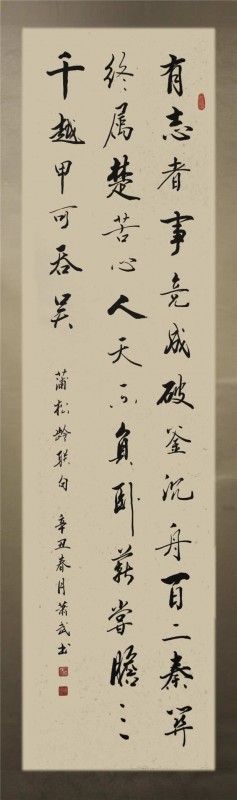 有志者事竟成破釜沉舟百二秦关
终属楚苦心人天不负卧薪尝胆三
千越甲可吞吴
蒲松龄联句 辛丑春月萧武书